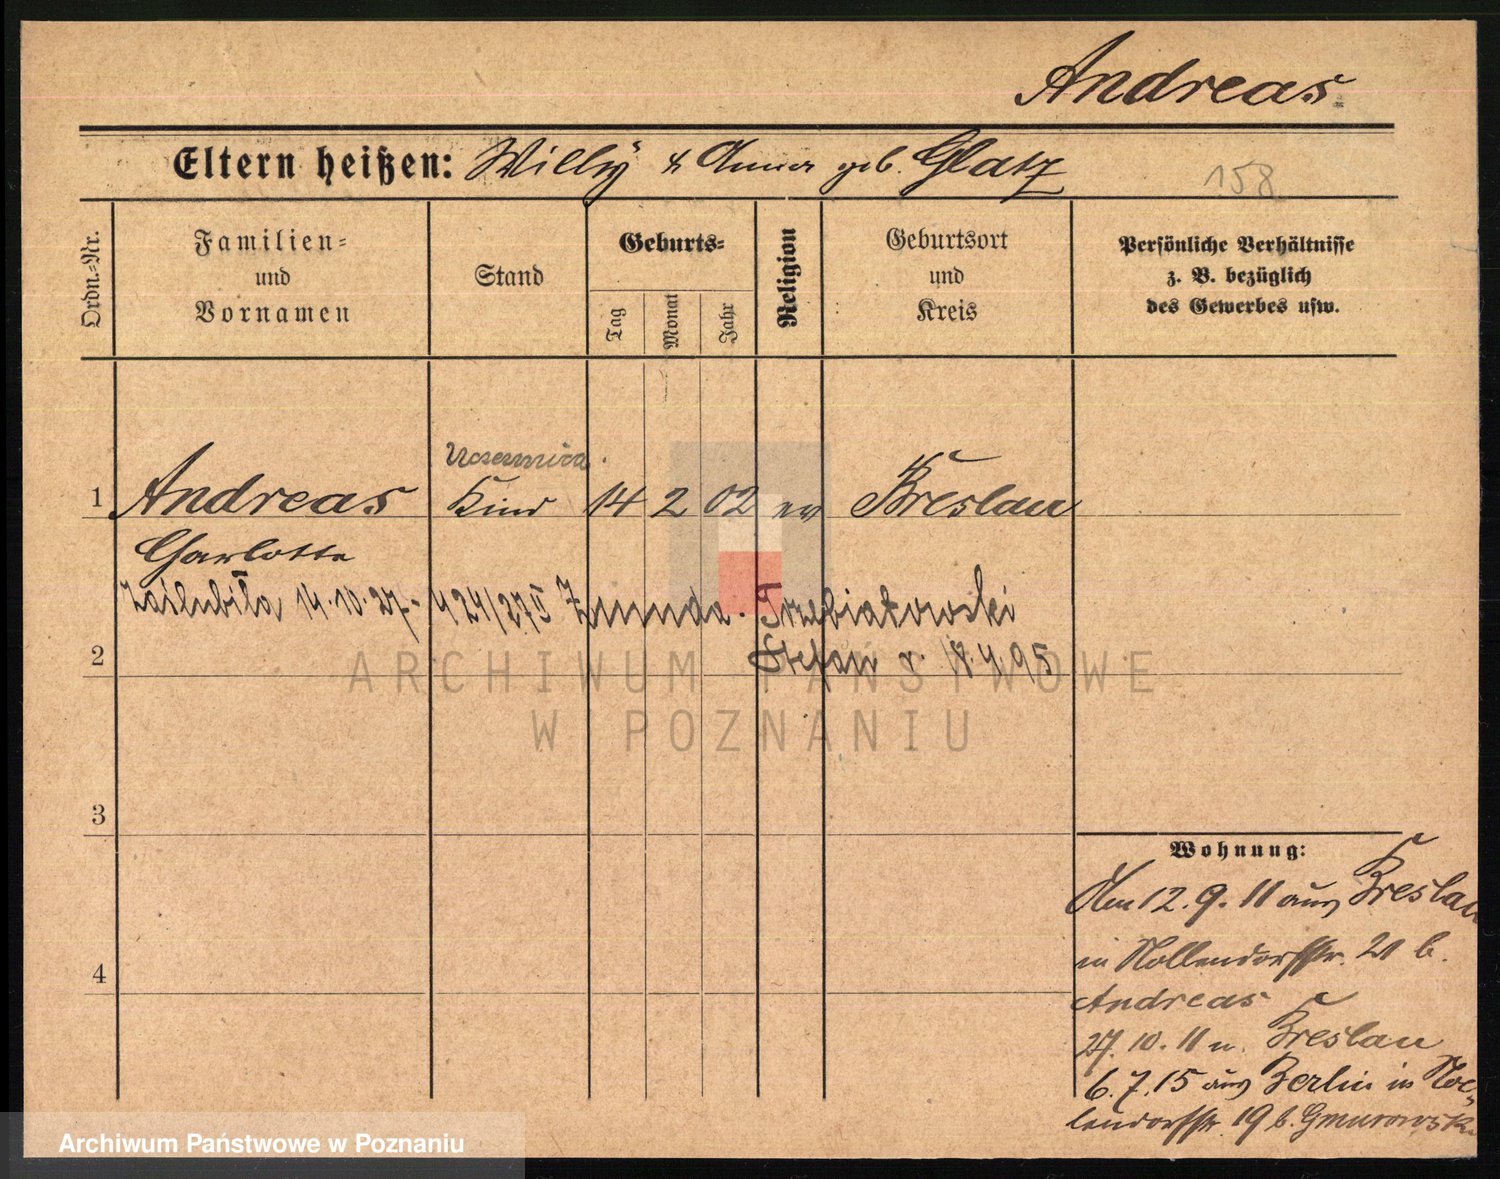 Andreas
Eltern heißen: Willy & Anna geb. Glatz
158
Ordn.=Nr.
Familien=
und
Vornamen
Stand
Geburts=
Tag
Monat
Jahr
Religion
Geburtsort
und
Kreis
Persönliche Verhältnisse
z. B. bezüglich
des Gewerbes usw.
1 Andreas Kind 14 2 02 ev Breslau
Charlotte
Zaślubiła 14.10.27 - 424/27 II Trzebiatowski
2 Stefan 18.4.95
3
4
Wohnung:
Am 12.9.11 aus Breslau
in Nollendorfstr. 21 b.
Andreas
27.10.11 n. Breslau
6.7.15 aus Berlin in Nol=
lendorfstr. 19 b. Gmurowski
ARCHIWUM PAŃSTWOWE
W POZNANIU
Archiwum Państwowe w Poznaniu